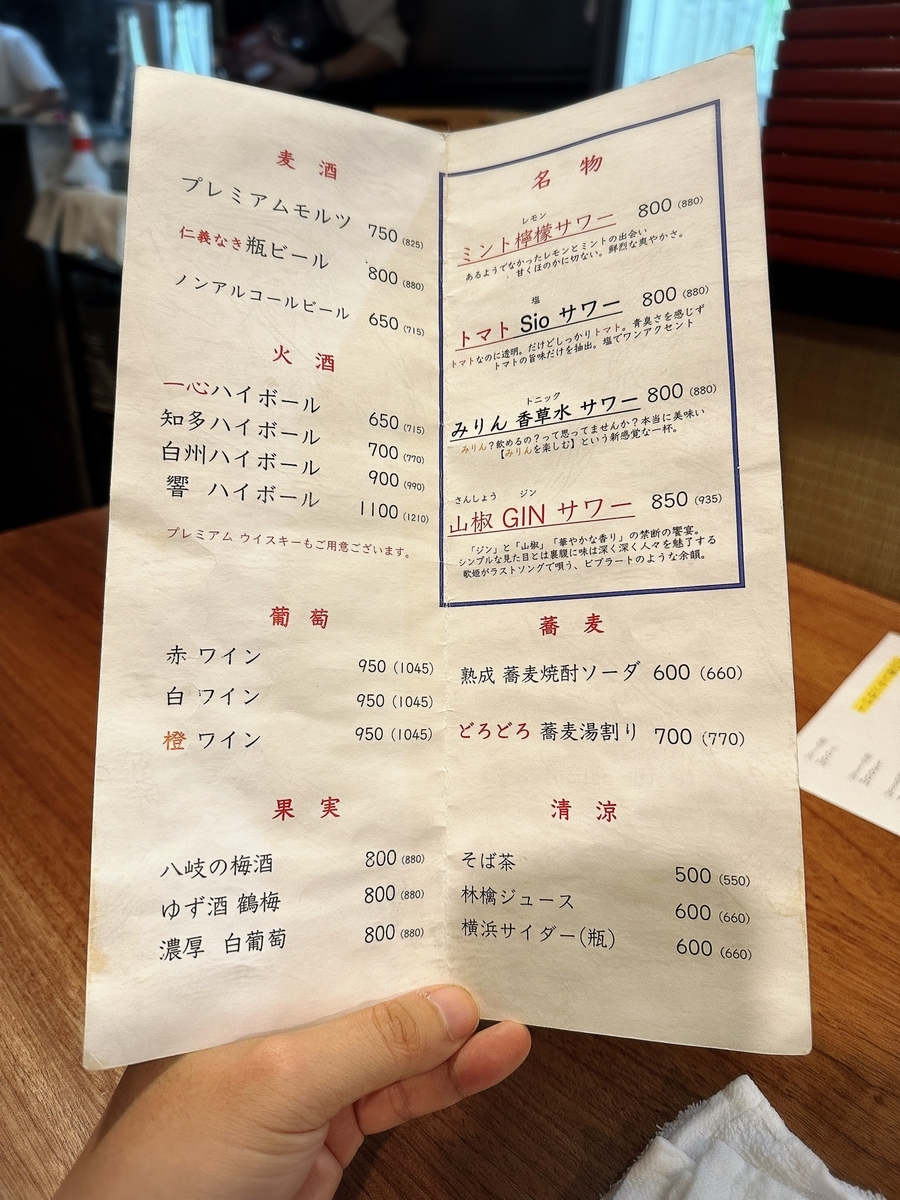 麦酒
プレミアムモルツ 750 (825)
仁義なき瓶ビール 800 (880)
ノンアルコールビール 650 (715)
火酒
一心ハイボール 650 (715)
知多ハイボール 700 (770)
白州ハイボール 900 (990)
響 ハイボール 1100 (1210)
プレミアム ウイスキーもご用意ございます。
葡萄
赤 ワイン 950 (1045)
白 ワイン 950 (1045)
橙 ワイン 950 (1045)
果実
八岐の梅酒 800 (880)
ゆず酒 鶴梅 800 (880)
濃厚 白葡萄 800 (880)
名物
レモン
ミント檸檬サワー 800 (880)
あるようでなかったレモンとミントの出会い
甘くほのかに切ない。鮮烈な爽やかさ。
塩
トマト Sio サワー 800 (880)
トマトなのに透明。だけどしっかりトマト。青臭さを感じず
トマトの旨味だけを抽出。塩でワンアクセント
トニック
みりん 香草水 サワー 800 (880)
みりん?飲めるの?って思ってませんか?本当に美味い
【みりんを楽しむ】という新感覚な一杯。
さんしょう ジン
山椒 GIN サワー 850 (935)
「ジン」と「山椒」「華やかな香り」の禁断の饗宴。
シンプルな見た目とは裏腹に味は深く深く人々を魅了する
歌姫がラストソングで唄う、ビブラートのような余韻。
蕎麦
熟成 蕎麦焼酎ソーダ 600 (660)
どろどろ 蕎麦湯割り 700 (770)
清涼
そば茶 500 (550)
林檎ジュース 600 (660)
横浜サイダー(瓶) 600 (660)